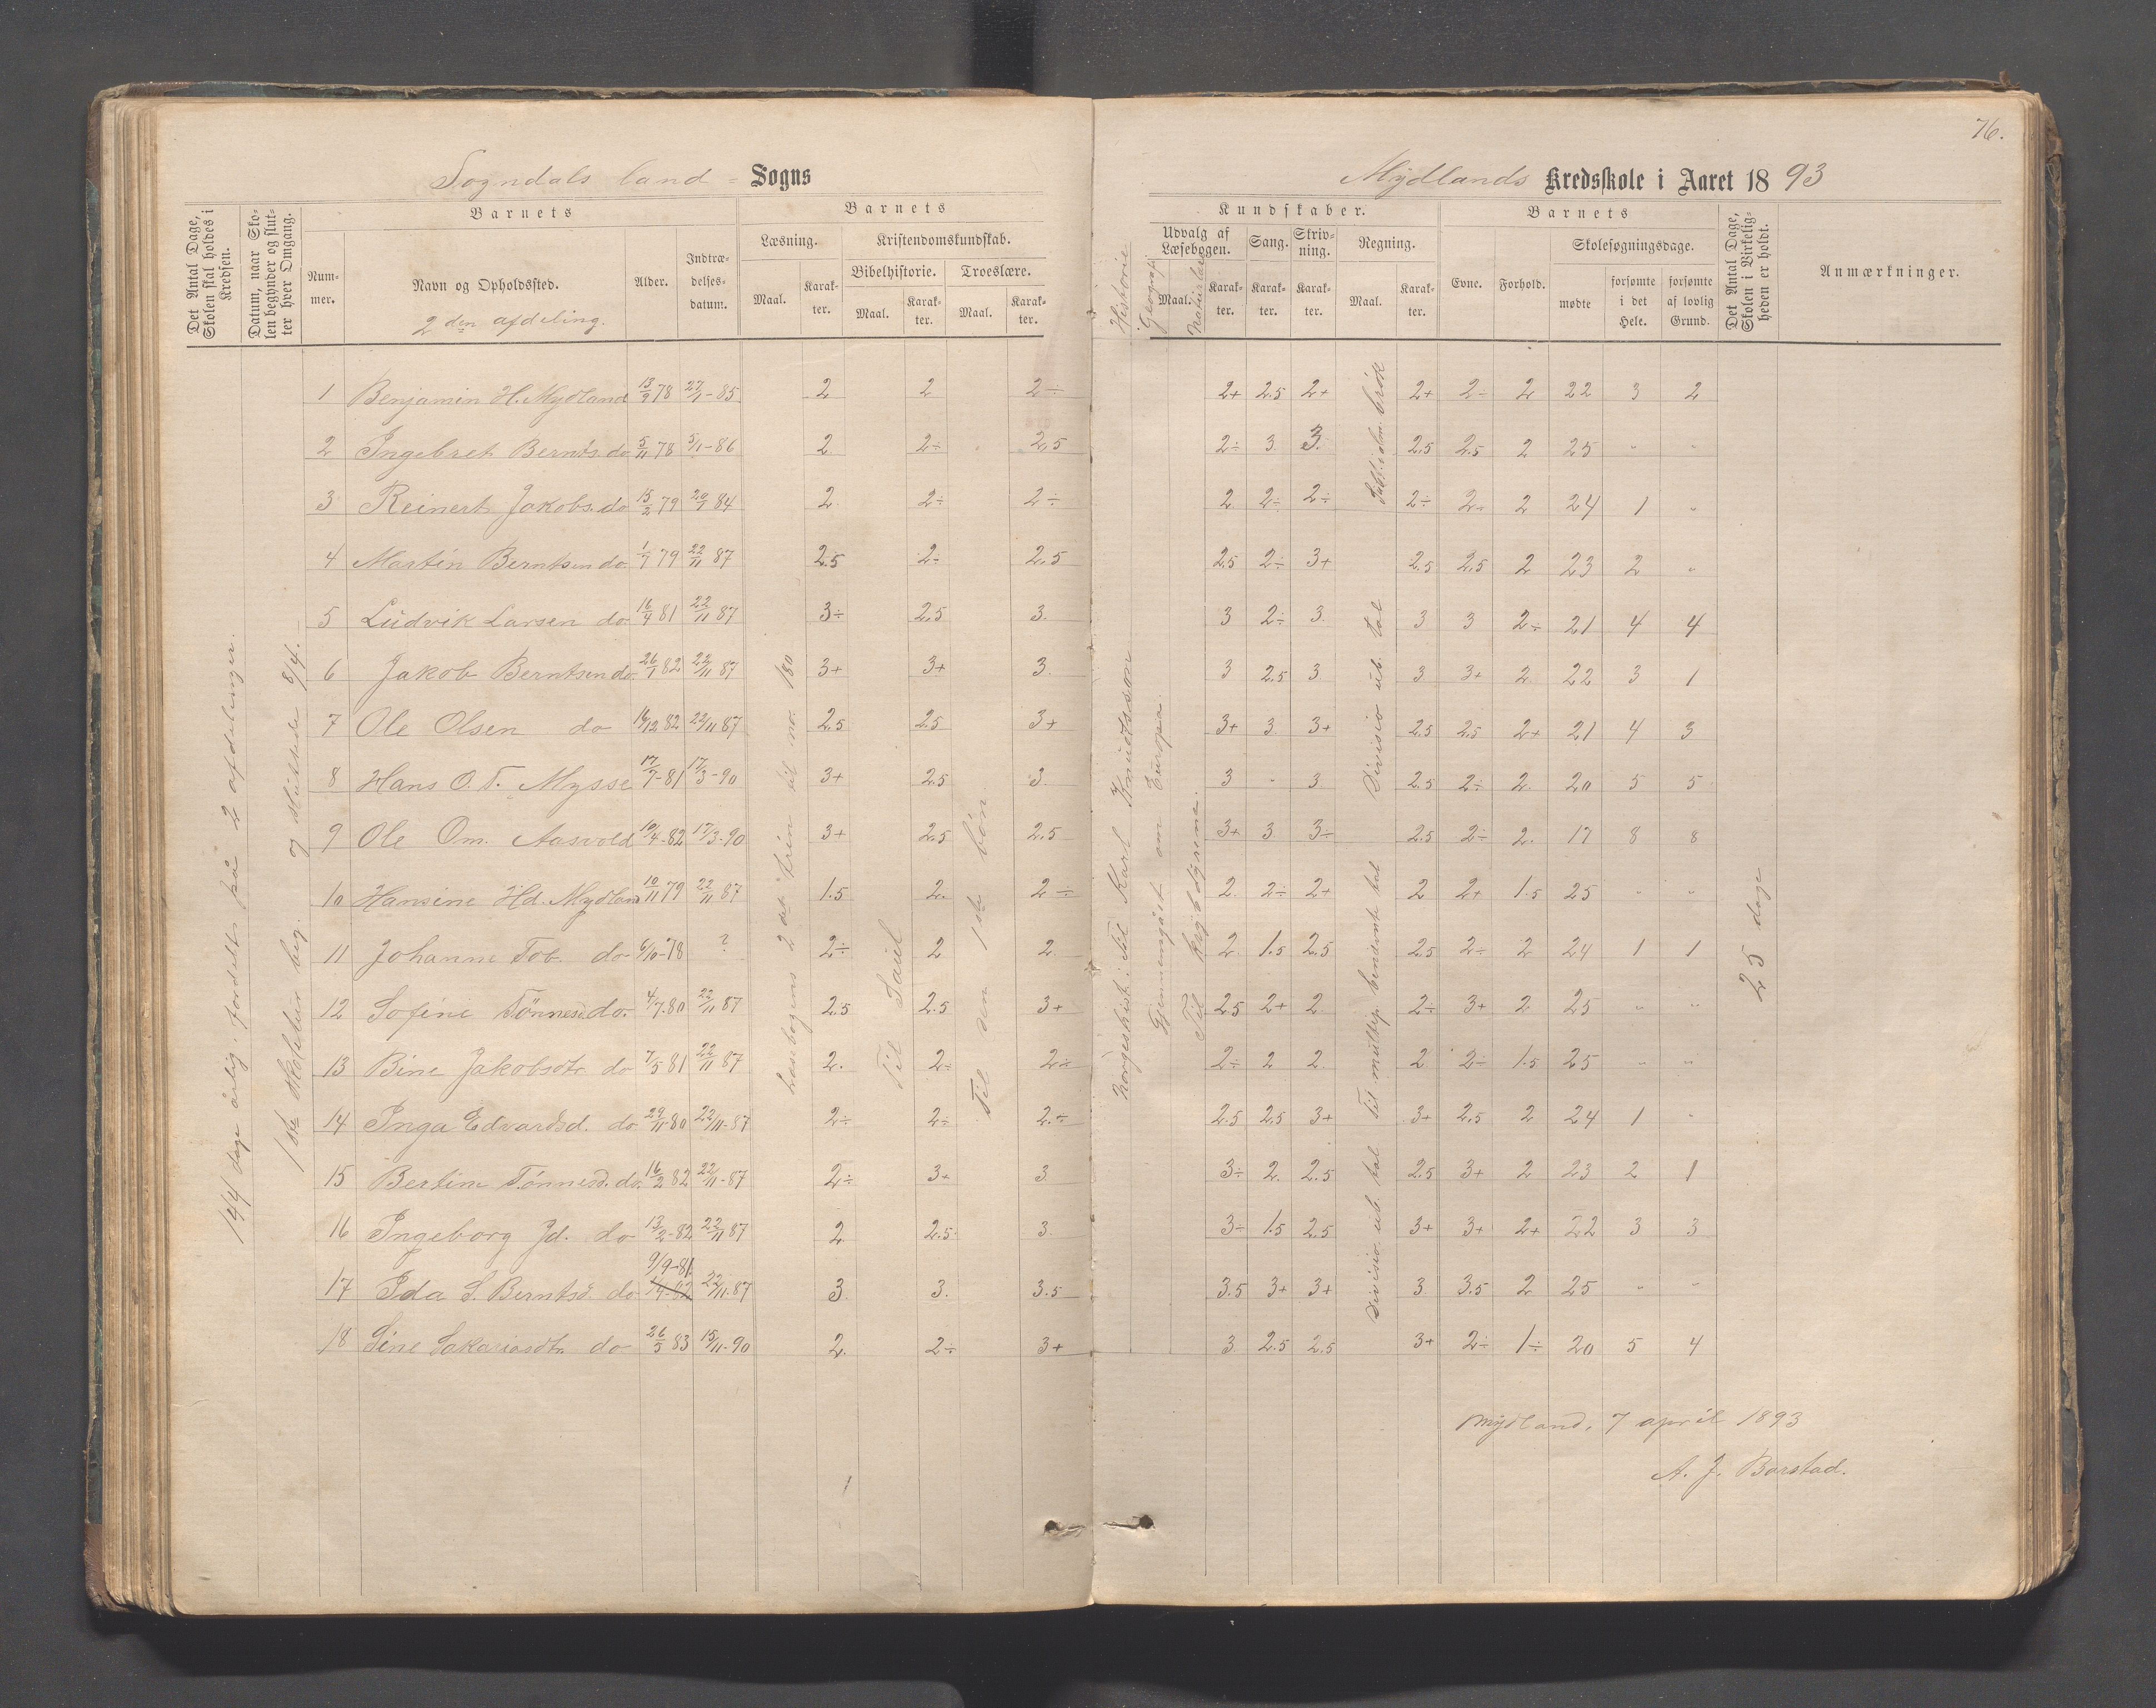 76.
Sogndals land - Sogns
Mydlands Kredsskole i Aaret 1893
Det Antal Dage, Skolen skal holdes i Kredsen.
Datum, naar Skolen begynder og slutter hver Omgang.
Barnets
Nummer.
Navn og Opholdssted.
2den afdeling.
Alder.
Indtrædelsesdatum.
Barnets
Læsning.
Maal.
Karakter.
Kristendomskundskab.
Bibelhistorie.
Maal.
Karakter.
Troeslære.
Maal.
Karakter.
Kundskaber.
Historie
Geografi
Naturlære
Udvalg af Læsebogen.
Maal.
Karakter.
Sang.
Karakter.
Skrivning.
Karakter.
Regning.
Maal.
Karakter.
Barnets
Evne.
Forhold.
Skolesøgningsdage.
mødte
forsømte i det Hele.
forsømte af lovlig Grund.
Det Antal Dage, Skolen i Virkeligheden er holdt.
Anmærkninger.
1 Benjamin H. Mydland 13/9 78 27/1-85 2 2 2÷ 2+ 2.5 2+ 2+ 2÷ 2 22 3 2
2 Ingebret Bernts. do 5/11 78 5/11-86 2 2÷ 2,5 2÷ 3 3. 2.5 2.5 2 25 " "
3 Reinert Jakobs. do 15/2 79 20/1 84 2 2÷ 2÷ 2 2÷ 2÷ 2÷ 2÷ 2 24 1 "
4 Martin Berntsen do 1/7 79 22/11 87 2.5 2÷ 2.5 2.5 2÷ 3+ 2.5 2.5 2 23 2 "
5 Ludvik Larsen do 16/4 81 22/11 87 3÷ 2.5 3. 3 2÷ 3. 3 3 2÷ 21 4 4
6 Jakob Berntsen do. 26/1 82 22/11 87 3+ 3+ 3. 3 2.5 3 3 3+ 2 22 3 1
7 Ole Olsen do 16/12 82 22/11 87 2.5 2.5 3+ 3+ 3. 3+ 2.5 2.5 2+ 21 4 3
8 Hans O. T. Mysse 17/7-81 17/3-90 3+ 2.5 3. 3 - 3 2.5 2÷ 2. 20 5 5
9 Ole Om. Aasvold 10/4-82 17/3-90 3+ 2.5 2.5 3+ 3 3÷ 2.5 2÷ 2. 17 8 8
10 Hansine Hd. Mydland 10/11 79 22/11 87 1.5 2. 2÷ 2. 2÷ 2+ 2 2+ 1.5 25 " "
11 Johanne Tob. do 6/10-78 ? 2÷ 2 2 2. 1.5 2.5 2.5 2÷ 2 24 1 1
12 Sofine Tønnesd. do. 4/7.80 22/11 87 2.5 2.5 3+ 2.5 2+ 2. 2÷ 3+ 2 25 " "
13 Bine Jakobsdtr do 7/5 81 22/11 87 2. 2÷ 2÷ 2÷ 2 2 2 2÷ 1.5 25 " "
14 Inga Edvardsd. do 29/11-80 22/11-87 2÷ 2÷ 2÷ 2.5 2.5 3+ 3+ 2.5 2 24 1 "
15 Bertine Tønnesd. do. 16/2 82 22/11-87 2÷ 3+ 3 3÷ 2. 2.5 2.5 3+ 2 23 2 1
16 Ingeborg Jd. do 13/2-82 22/11 87 2 2.5 3. 3÷ 1.5 2.5 3+ 3+ 2+ 22 3 3
17 Ida S. Berntsd. do 9/9-81 22/11-87 3. 3. 3.5 3.5 3+ 3+ 3 3.5 2 25 " "
18 Sine Sakariasdtr do 26/5 83 15/11-90 2. 2÷ 3+ 3 2.5 2.5 3+ 2÷ 1÷ 20 5 4
144 dage årlig, fordelt på 2 afdelinger.
1ste Skoletur beg. og sluttede 8/4.
Læsebogens 2det trin til no. 180
Til Saul
Til den 1ste bøn
Norgeshist. til Karl Knudtsson
Gjennemgåt om Europa.
Til krybdyrene.
Divisio ub. tal
Til multip. benævnte tal
Divisio ub. tal
25 dage
Mydland, 7 april 1893
A. J. Barstad.